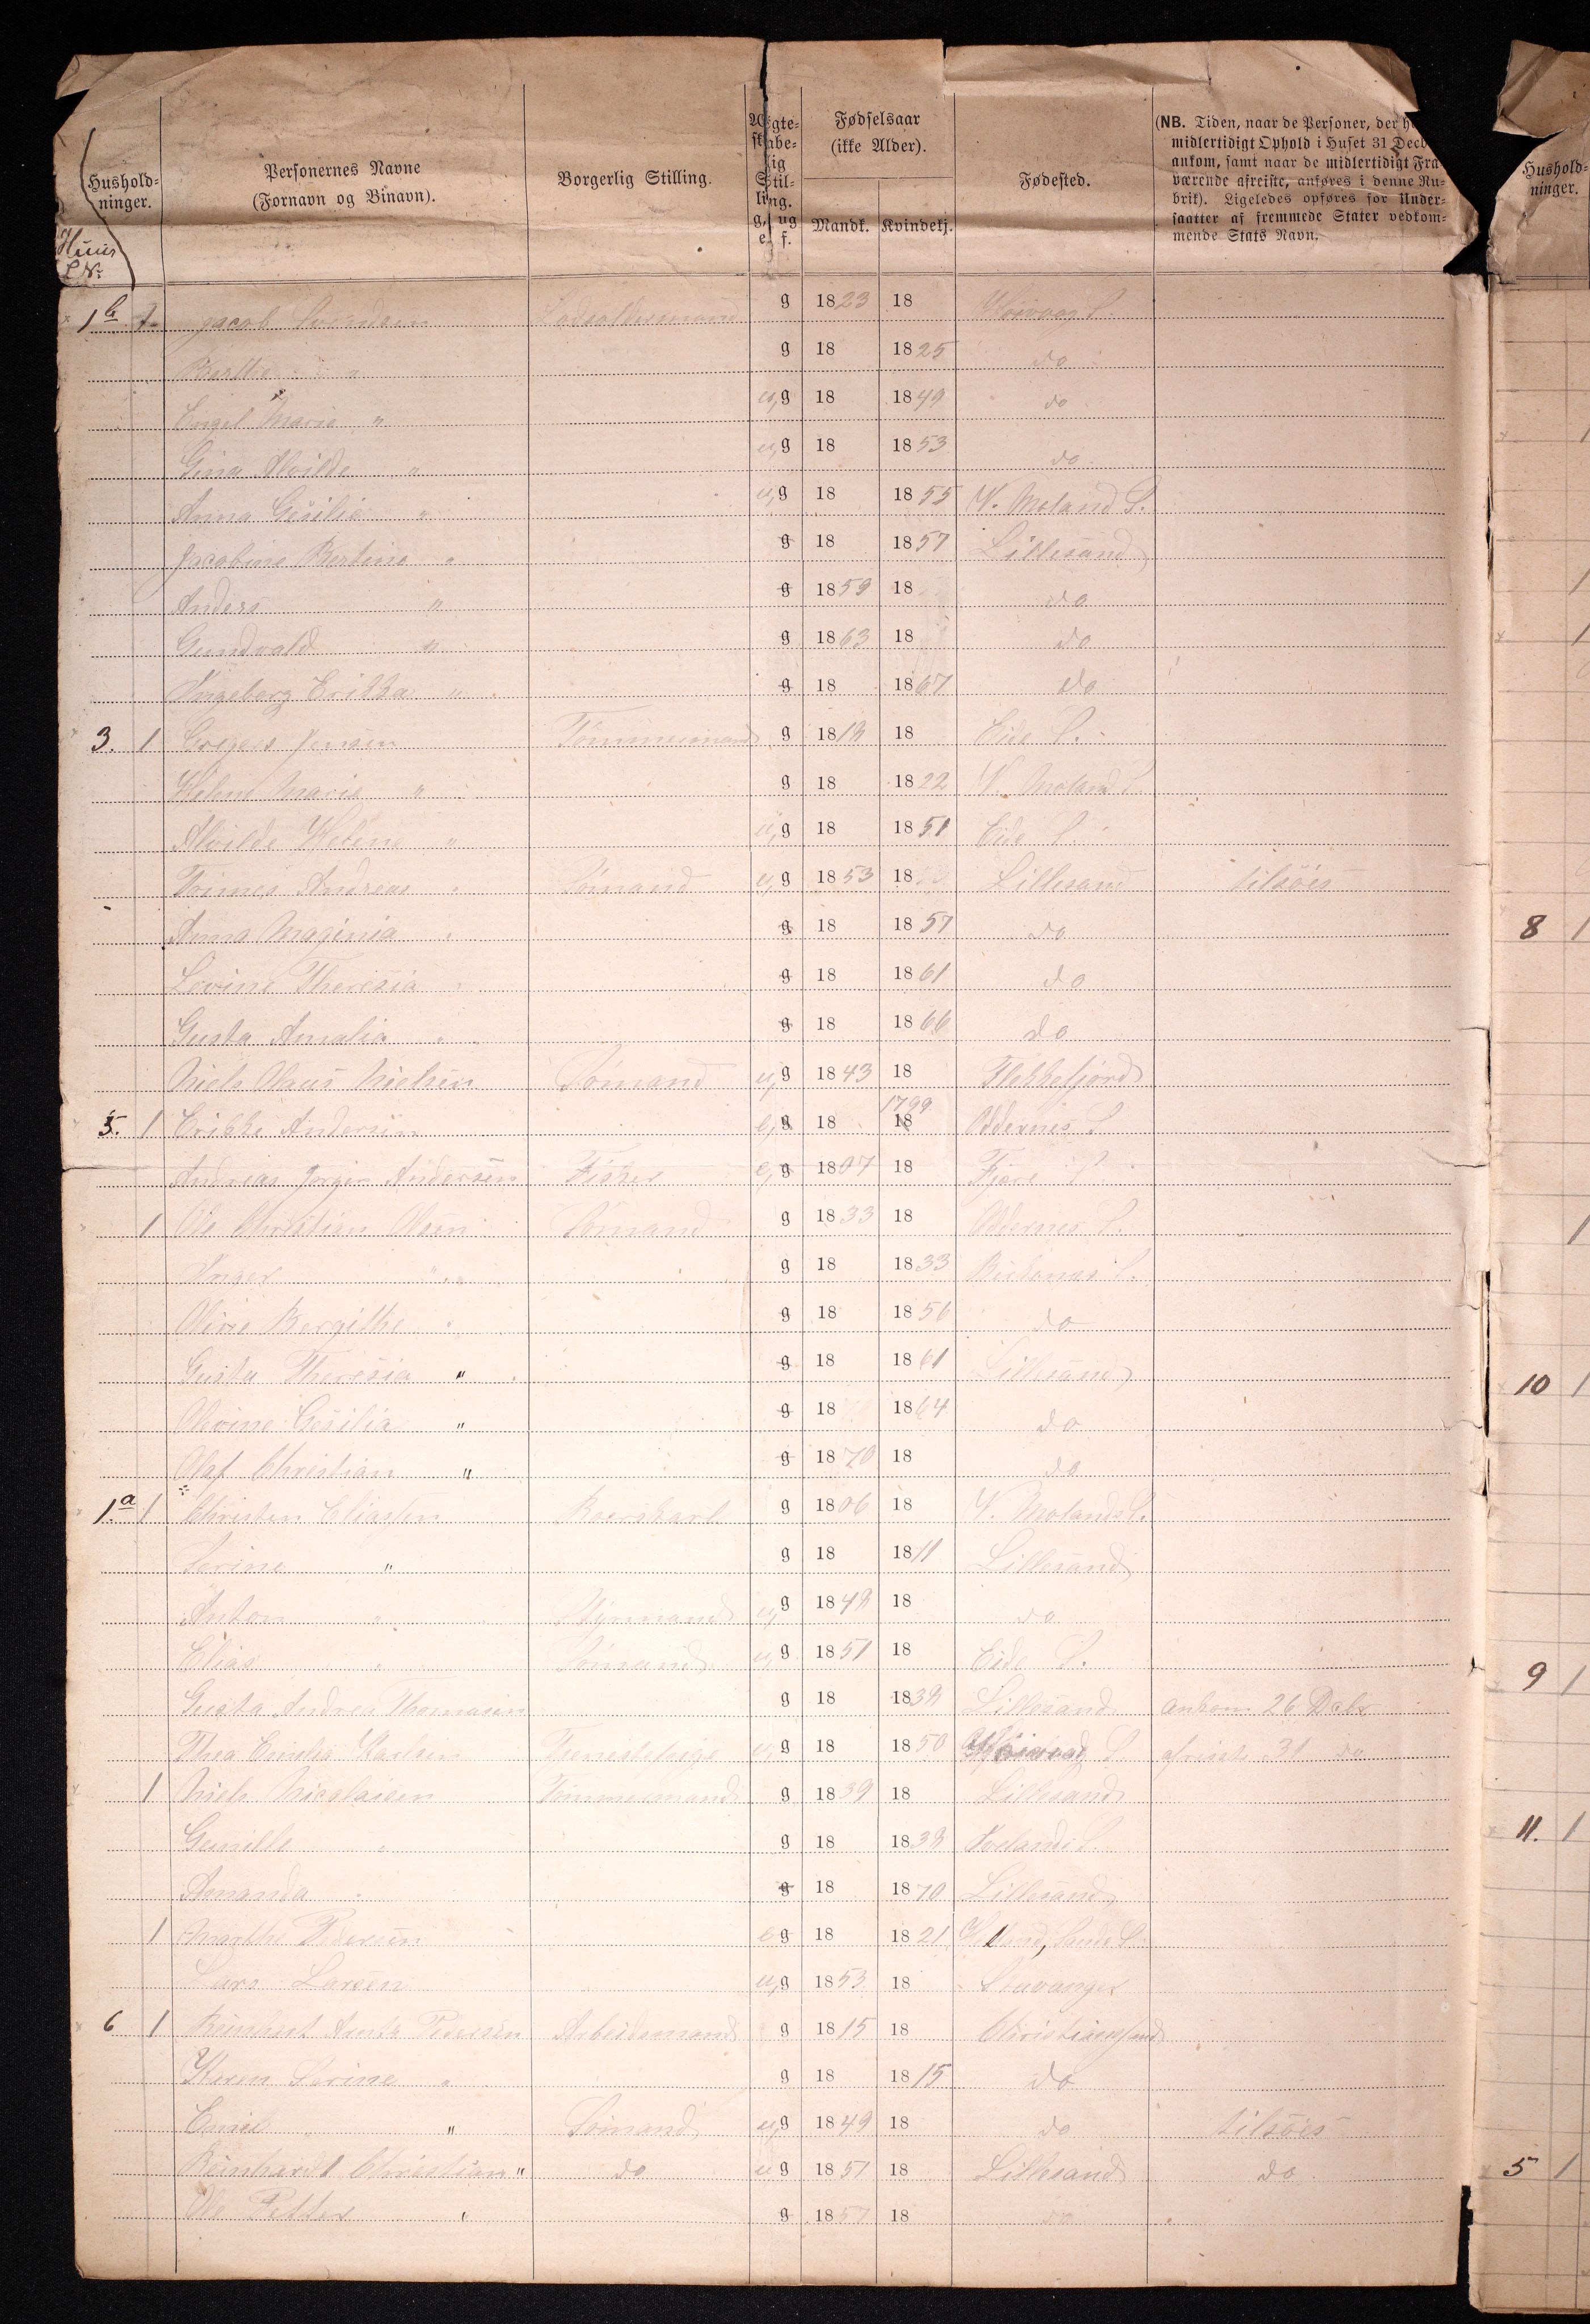 Hushold-
ninger.
Personernes Navne
(Fornavn og Binavn).
Borgerlig Stilling.
Ægte-
skabe-
lig
Stil-
ling.
g, ug
e, f.
Fødselsaar
(ikke Alder).
Mandk. Kvindekj.
Fødested.
(NB. Tiden, naar de Personer, der
midlertidigt Ophold i Huset 31 Decb
ankom, samt naar de midlertidigt Fra
værende afreiste, anføres i denne Ru-
brik). Ligeledes opføres for Under-
saatter af fremmede Stater vedkom-
mende Stats Navn.
Hushold-
ninger.
Huus
L No
1b Jacob Svendsen g 1823 18
Berthe " g 18 1825 do
Engel Marie " u,g 18 1849 do
Gina Alvilde " u,g 18 1853 do
Anna Cesilie " u,g 18 1855 V. Moland S.
Jacobine Bertine " g 18 1857 Lillesand
Anders " g 1859 18 do
Gundvald " g 1863 18 do
Ingeborg Erikka " g 18 1867 do
3. 1 Jensen Tømmermand g 18 18 Eide S.
Helene Marie " g 18 1822 V. Moland S.
Alvilde Helene " u,g 18 1851 Eide S.
Andreas " Sømand u,g 1853 18 Lillesand tilsøes
Anna Maginia " g 18 1857 do
Lovine Theresia " g 18 1861 do
Gusta Amalia " g 18 1866 do
Niels Olaus Nielsen Sømand u,g 1843 18 Flekkefjord 8 1
5. 1 Erikke Andersen e,g 18 1799 Oddernes S
Andreas Jørgen Andersen Fisker e,g 1807 18 Fjære S
1 Ole Christian Olsen Sømand g 1833 18 Oddernes S.
Inger " g 18 1833
Olivie Bergithe " g 18 1856 do
Gusta Theresia " g 18 1861 Lillesand 10 1
Olevine Cesilia " g 18 1864 do
Olaf Christian " g 1870 18 do
1a 1 Christen Eliassen g 1806 18 V. Moland S.
Serine " g 18 1811 Lillesand
Anton " Styrmand u,g 1848 18 do
Elias " Sømand u,g 1851 18 Eide S. 9 1
Gusta Andrea Thomasen g 18 1838 Lillesand ankom 26 Dcbr
Thea Emilie Karlsen Tjenestepige u,g 18 1850 S. afreiste 31 do
1 Niels Nicolaisen Tømmermand g 1839 18 Lillesand
Gunille " g 18 1838 S. 11. 1
Amanda " g 18 1870 Lillesand
1 Marthe Pedersen e g 18 1821
Lars Larsen u,g 1853 18 Stavanger
6 1 Pedersen Arbeidsmand g 1815 18 Christiansand
Karen Serine " g 18 1815 do
Emil " Sømand u,g 1849 18 do tilsøes
Reinhardt Christian " do u g 1851 18 Lillesand do 5 1
Ole Petter " g 1857 18 do